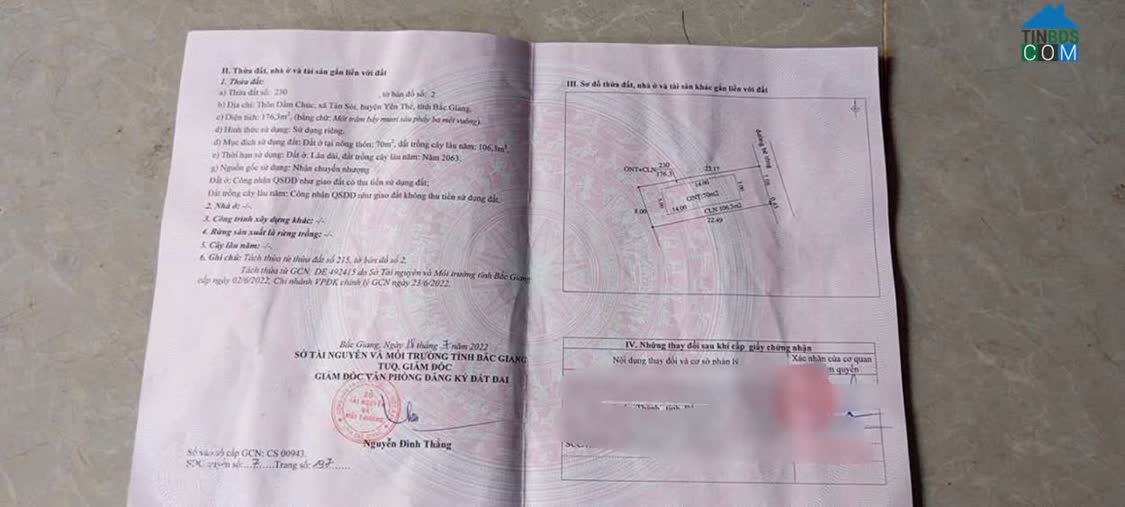 TINBDS
COM
II. Thửa đất, nhà ở và tài sản gắn liền với đất
1. Thửa đất:
a) Thửa đất số: 230 , tờ bản đồ số: 2
b) Địa chỉ: Thôn Dầm Chúc, xã Tân Sỏi, huyện Yên Thế, tỉnh Bắc Giang.
c) Diện tích: 176,3m², (bằng chữ: Một trăm bảy mươi sáu phẩy ba mét vuông).
d) Hình thức sử dụng: Sử dụng riêng.
đ) Mục đích sử dụng đất: Đất ở tại nông thôn: 70m², đất trồng cây lâu năm: 106,3m².
e) Thời hạn sử dụng: Đất ở: Lâu dài, đất trồng cây lâu năm: Năm 2063.
g) Nguồn gốc sử dụng: Nhận chuyển nhượng
Đất ở: Công nhận QSDĐ như giao đất có thu tiền sử dụng đất;
Đất trồng cây lâu năm: Công nhận QSDĐ như giao đất không thu tiền sử dụng đất.
2. Nhà ở: -/-
3. Công trình xây dựng khác: -/-
4. Rừng sản xuất là rừng trồng: -/-
5. Cây lâu năm: -/-
6. Ghi chú: Tách thửa từ thửa đất số 215, tờ bản đồ số 2.
Tách thửa từ GCN: DE 492415 do Sở Tài nguyên và Môi trường tỉnh Bắc Giang
cấp ngày 02/6/2022, Chi nhánh VPĐK chỉnh lý GCN ngày 23/6/2022.
Bắc Giang, Ngày tháng 7 năm 2022
SỞ TÀI NGUYÊN VÀ MÔI TRƯỜNG TỈNH BẮC GIANG
TUQ. GIÁM ĐỐC
GIÁM ĐỐC VĂN PHÒNG ĐĂNG KÝ ĐẤT ĐAI
SỞ
TÀI NGUYÊN
VÀ
MÔI TRƯỜNG
Nguyễn Đình Thắng
Số vào sổ cấp GCN: CS 00943.
SĐC quyển số: 7 Trang số: 197
III. Sơ đồ thửa đất, nhà ở và tài sản khác gắn liền với đất
đường bê tông
ONT+CLN 230
176.3
22.17
14.00
ONT:70m2
8.00
14.00
CLN:106.3m2
22.49
IV. Những thay đổi sau khi cấp giấy chứng nhận
Nội dung thay đổi và cơ sở pháp lý
Xác nhận của cơ quan
quyền